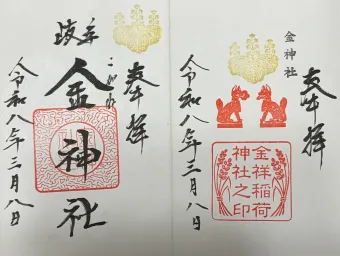 奉拝
金神社
金祥稲荷
神社之印
令和八年三月八日
奉拝
岐阜
こがね
金神社
令和八年三月八日